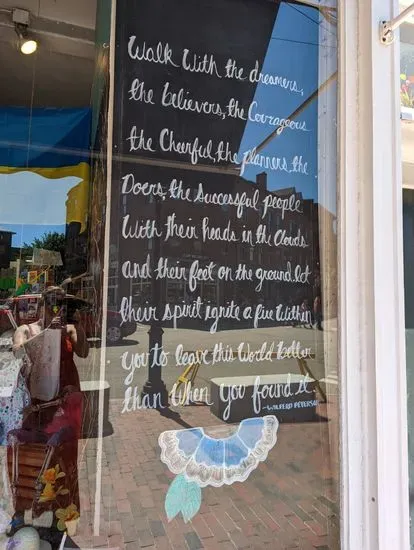 Walk With the dreamers,
the believers, the Courageous
the Cheerful, the planners, the
Doers, the successful people
With their heads in the Clouds
and their feet on the ground. let
their spirit ignite a fire Within
you to leave this World better
than When you found it.
-WILFERD PETERSON